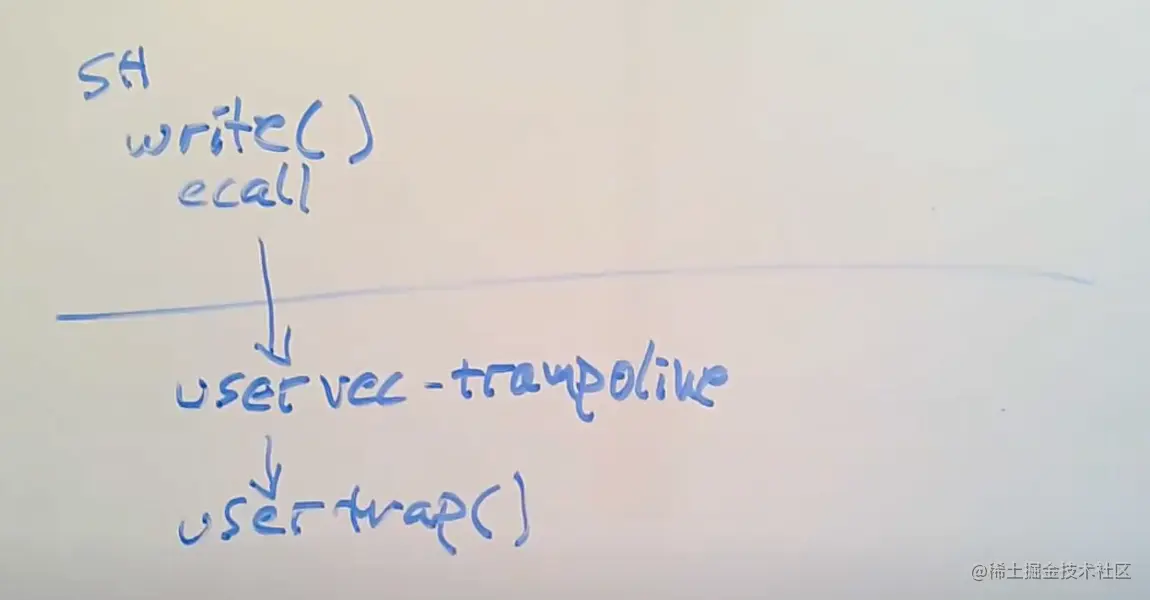 SH
write()
ecall
uservec-trampoline
usertrap()
@稀土掘金技术社区